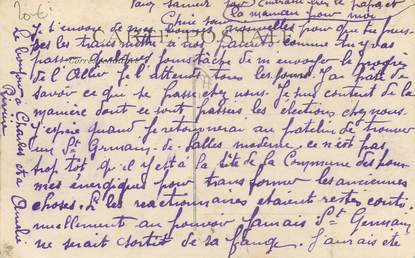 20€
la maman pour moi
CARTE POSTALE
Correspondance
Je t'envoie de mes bonnes nouvelles pour que tu puis-
ses les transmettre à nos parents comme tu y vas
passer quelques jours tache de m'envoyer le progrès
de l'Allier je l'attends tous les jours. J'ai hate de
savoir ce qui se passe chez nous. Je suis content de la
manière dont ce sont passés les élections chez nous.
J'espère quand je retournerai au patelin de trouver
un St Germain-de-Salles moderne, ce n'est pas
trop tôt qu'il y est à la tête de la Commune des hom-
mes energiques pour transformer les anciennes
choses. Si les reactionnaires étaient restés conti-
nuellement au pouvoir jamais St Germain
ne serait sortit de sa fange. J'aurais été
Le bonjour à Charles et a André
Perrine